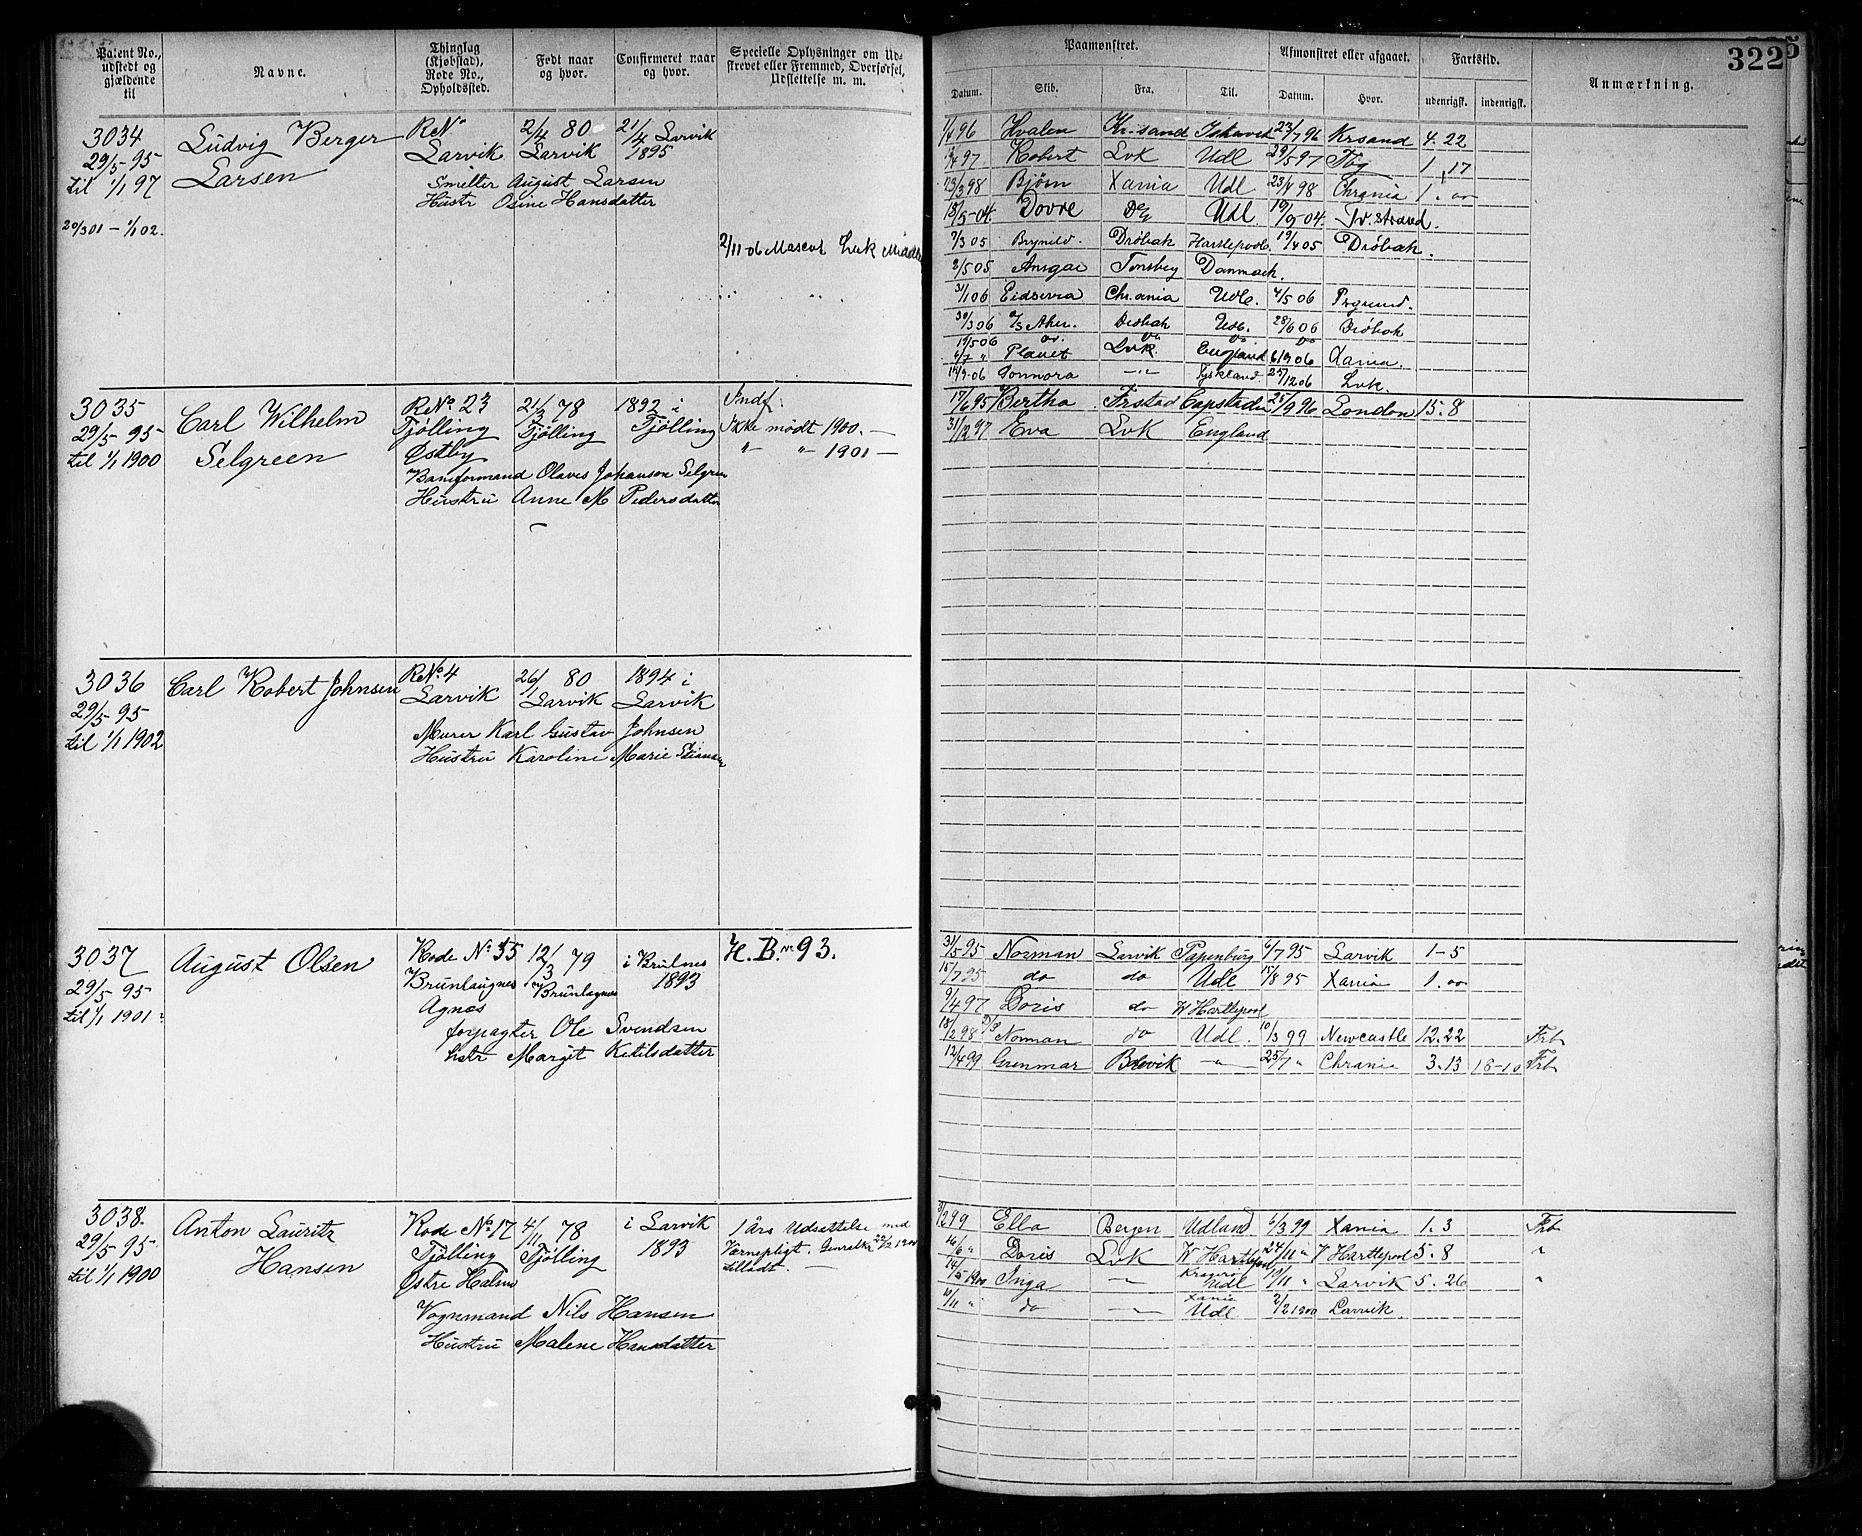 322
Patent No., udstedt og gjældende til
Navne.
Thinglag (Kjøbstad), Rode No., Opholdssted.
Født naar og hvor.
Confirmeret naar og hvor.
Specielle Oplysninger om Udskrevet eller Fremmed, Overførsel, Udslettelse m. m.
Paamønstret.
Afmønstret eller afgaaet.
Fartstid.
Anmærkning.
Datum. Skib. Fra. Til. Datum. Hvor. udenrigsk. indenrigsk.
3034
29/5-95
til 1/1 97
20/3 01 – 1/1 02.
Ludvig Berger
Larsen
RNo
Larvik
2/4 80
Larvik
21/4 Larvik
1895
Smelter August Larsen
Hustr Osine Hansdatter
2/11-06 Mascot Lvk
96 Hvalen Kr.sand 23/7 96 Krsand 4. 22
97 Robert Lvk Udl 29/5 97 Tbg 1 17
23/3 98 Bjørn Xania Udl 98 Chrania 1. 00
18/5-04. Dovre Udl. 19/9 04. Tv.strand.
7/3 05 Brynild. Drøbak Hartlepool. 19/4 05 Drøbak.
2/5 05 Ansgar Tønsberg Danmark.
31/1 06 Eidsivia Chr.ania Udl. 4/5 06 Prgrund.
30/3 06 Drøbak Udl. 28/6 06 Drøbak
19/5 06 do. do do do
6/7 " Planet Lvk. England 6/9 06 Xania.
14/9-06 Sonnora —"— Tyskland 27/12 06 Lvk.
3035
29/5-95
til 1/1 1900
Carl Wilhelm
Selgreen
RNo 23
Tjølling
Østby
21/3 78
Tjølling
1892 i
Tjølling
Indf.
Ikke mødt 1900. —
" " 1901 —
Baneformand Olaves Johanson Selgren
Hustru Anne M Pedersdatter
17/6 95 Bertha Frstad Capstaden 25/9 96 London 15. 8
31/12 97 Eva Lvk England
3036
29/5-95
til 1/1 1902
Carl Robert Johnsen
RNo. 4
Larvik
26/1 80
Larvik
1894 i
Larvik
Murer Karl Gustav Johnsen
Hustru Karoline Marie
3037
29/5-95
til 1/1 1901
August Olsen
Rode No 35
Brunlaugnes
Agnes
12/3 79
Brunlagnes
i Brulnes
1893
H. B. No. 93.
forpagter Ole Svendsen
hstr Margit Ketilsdatter
31/5 95 Norman Larvik Papenburg 6/7 95 Larvik 1–5
15/7 95 do do Udl 15/8 95 Xania 1. 00
9/4 97 Doris do W Hartlepool
18/2 98 D/S Norman do Udl. 10/3 99 Newcastle 12. 22 Frb
12/4 99 Grenmar Brevik —"— 25/7 " Chrania 3. 13 18–10 Frb
3038.
29/5-95
til 1/1 1900
Anton Lauritz
Hansen
Rode No 17
Tjølling
Østre Halms
4/11 78
Tjølling
i Larvik
1893
1 års Udsættelse med
Værnepligt. 1900
tilládt. —
Vognmand Nils Hansen
Hustru Malene Hansdatter
2 99 Ella Bergen Udland 6/3 99 Xania 1. 3 Frb
16/6 " Doris Lvk W Hartlepool 24/11 " W Hartlepool 5. 8 "
14/5-1900 Inga —"— Kragerø Udl 10/11 " Larvik 5. 26 "
10/11 " do —"— Xania Udl 2/2 1900 Larvik.